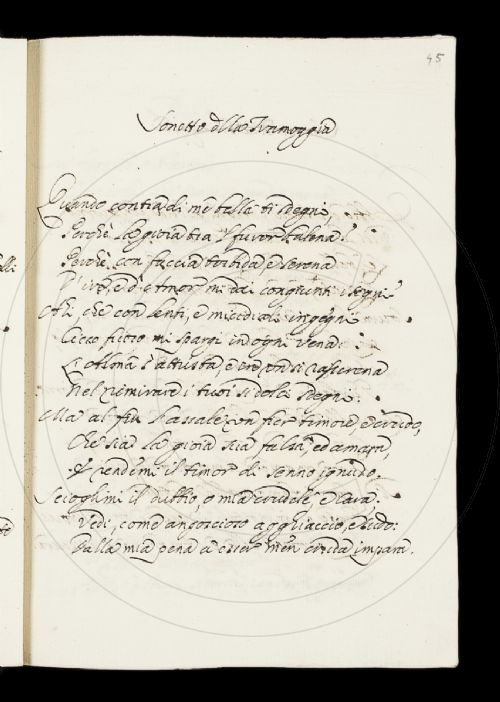 45
Sonetto della Tramoggia
Quando contra di me bella ti sdegni,
Perchè la gioia tua 'l furor balena?
Perchè con faccia torbida, e serena
D'ire, e d'Amor mi dai congiunti i segni?
Ahi, che con lenti, e micidiali ingegni
Cieco foco mi spargi in ogni vena:
L'Alma s'attrista, e
Nel rimirare i tuoi sì dolci sdegni.
Ma al fin l'assale un fier timore, e crudo,
Che sia la gioia sua falsa, ed amara,
E rendemi il timor di senno ignudo.
Scioglimi il dubbio, o mia crudele, e cara.
Vedi, com'e agghiaccio, e sudo:
Dalla mia pena a esser men cruda impara.